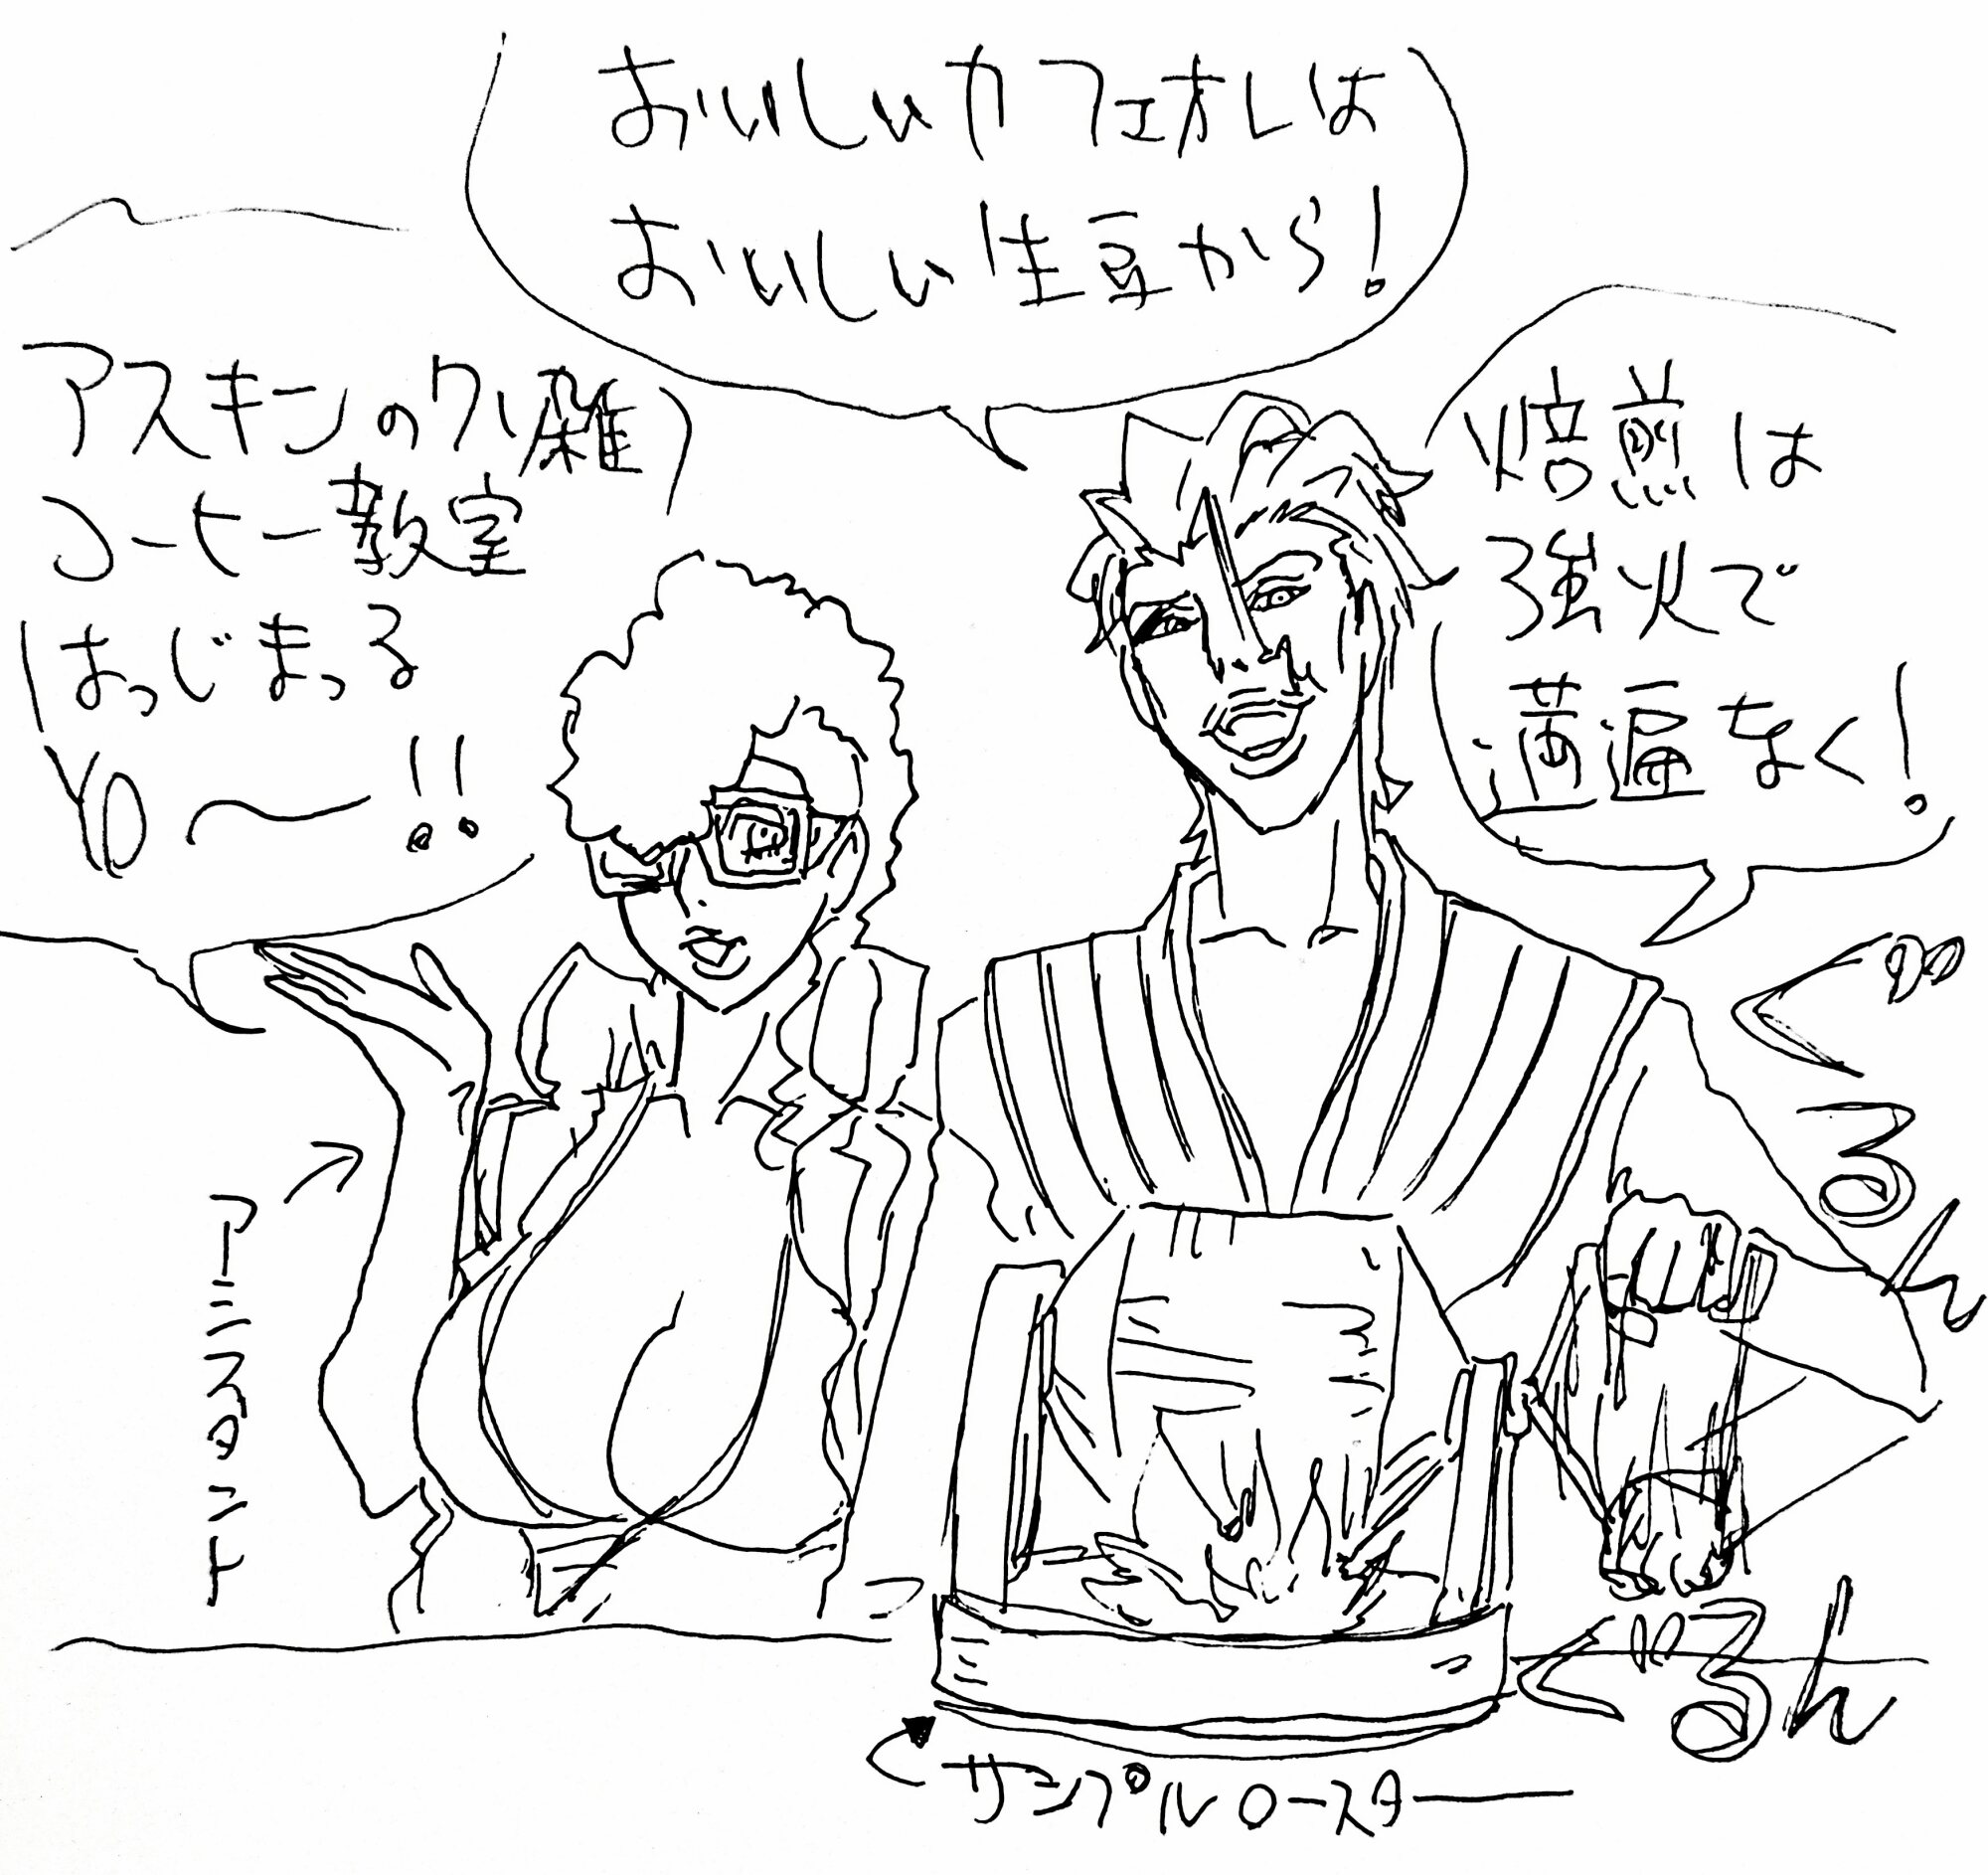 おいしいカフェオレは
おいしい生豆から!
アスキンの複雑
コーヒー教室
はっじまっる
YO〜!!
焙煎は
強火で
満遍なく!
ぐるん
アシスタント
ぐるん
サンプルロースター